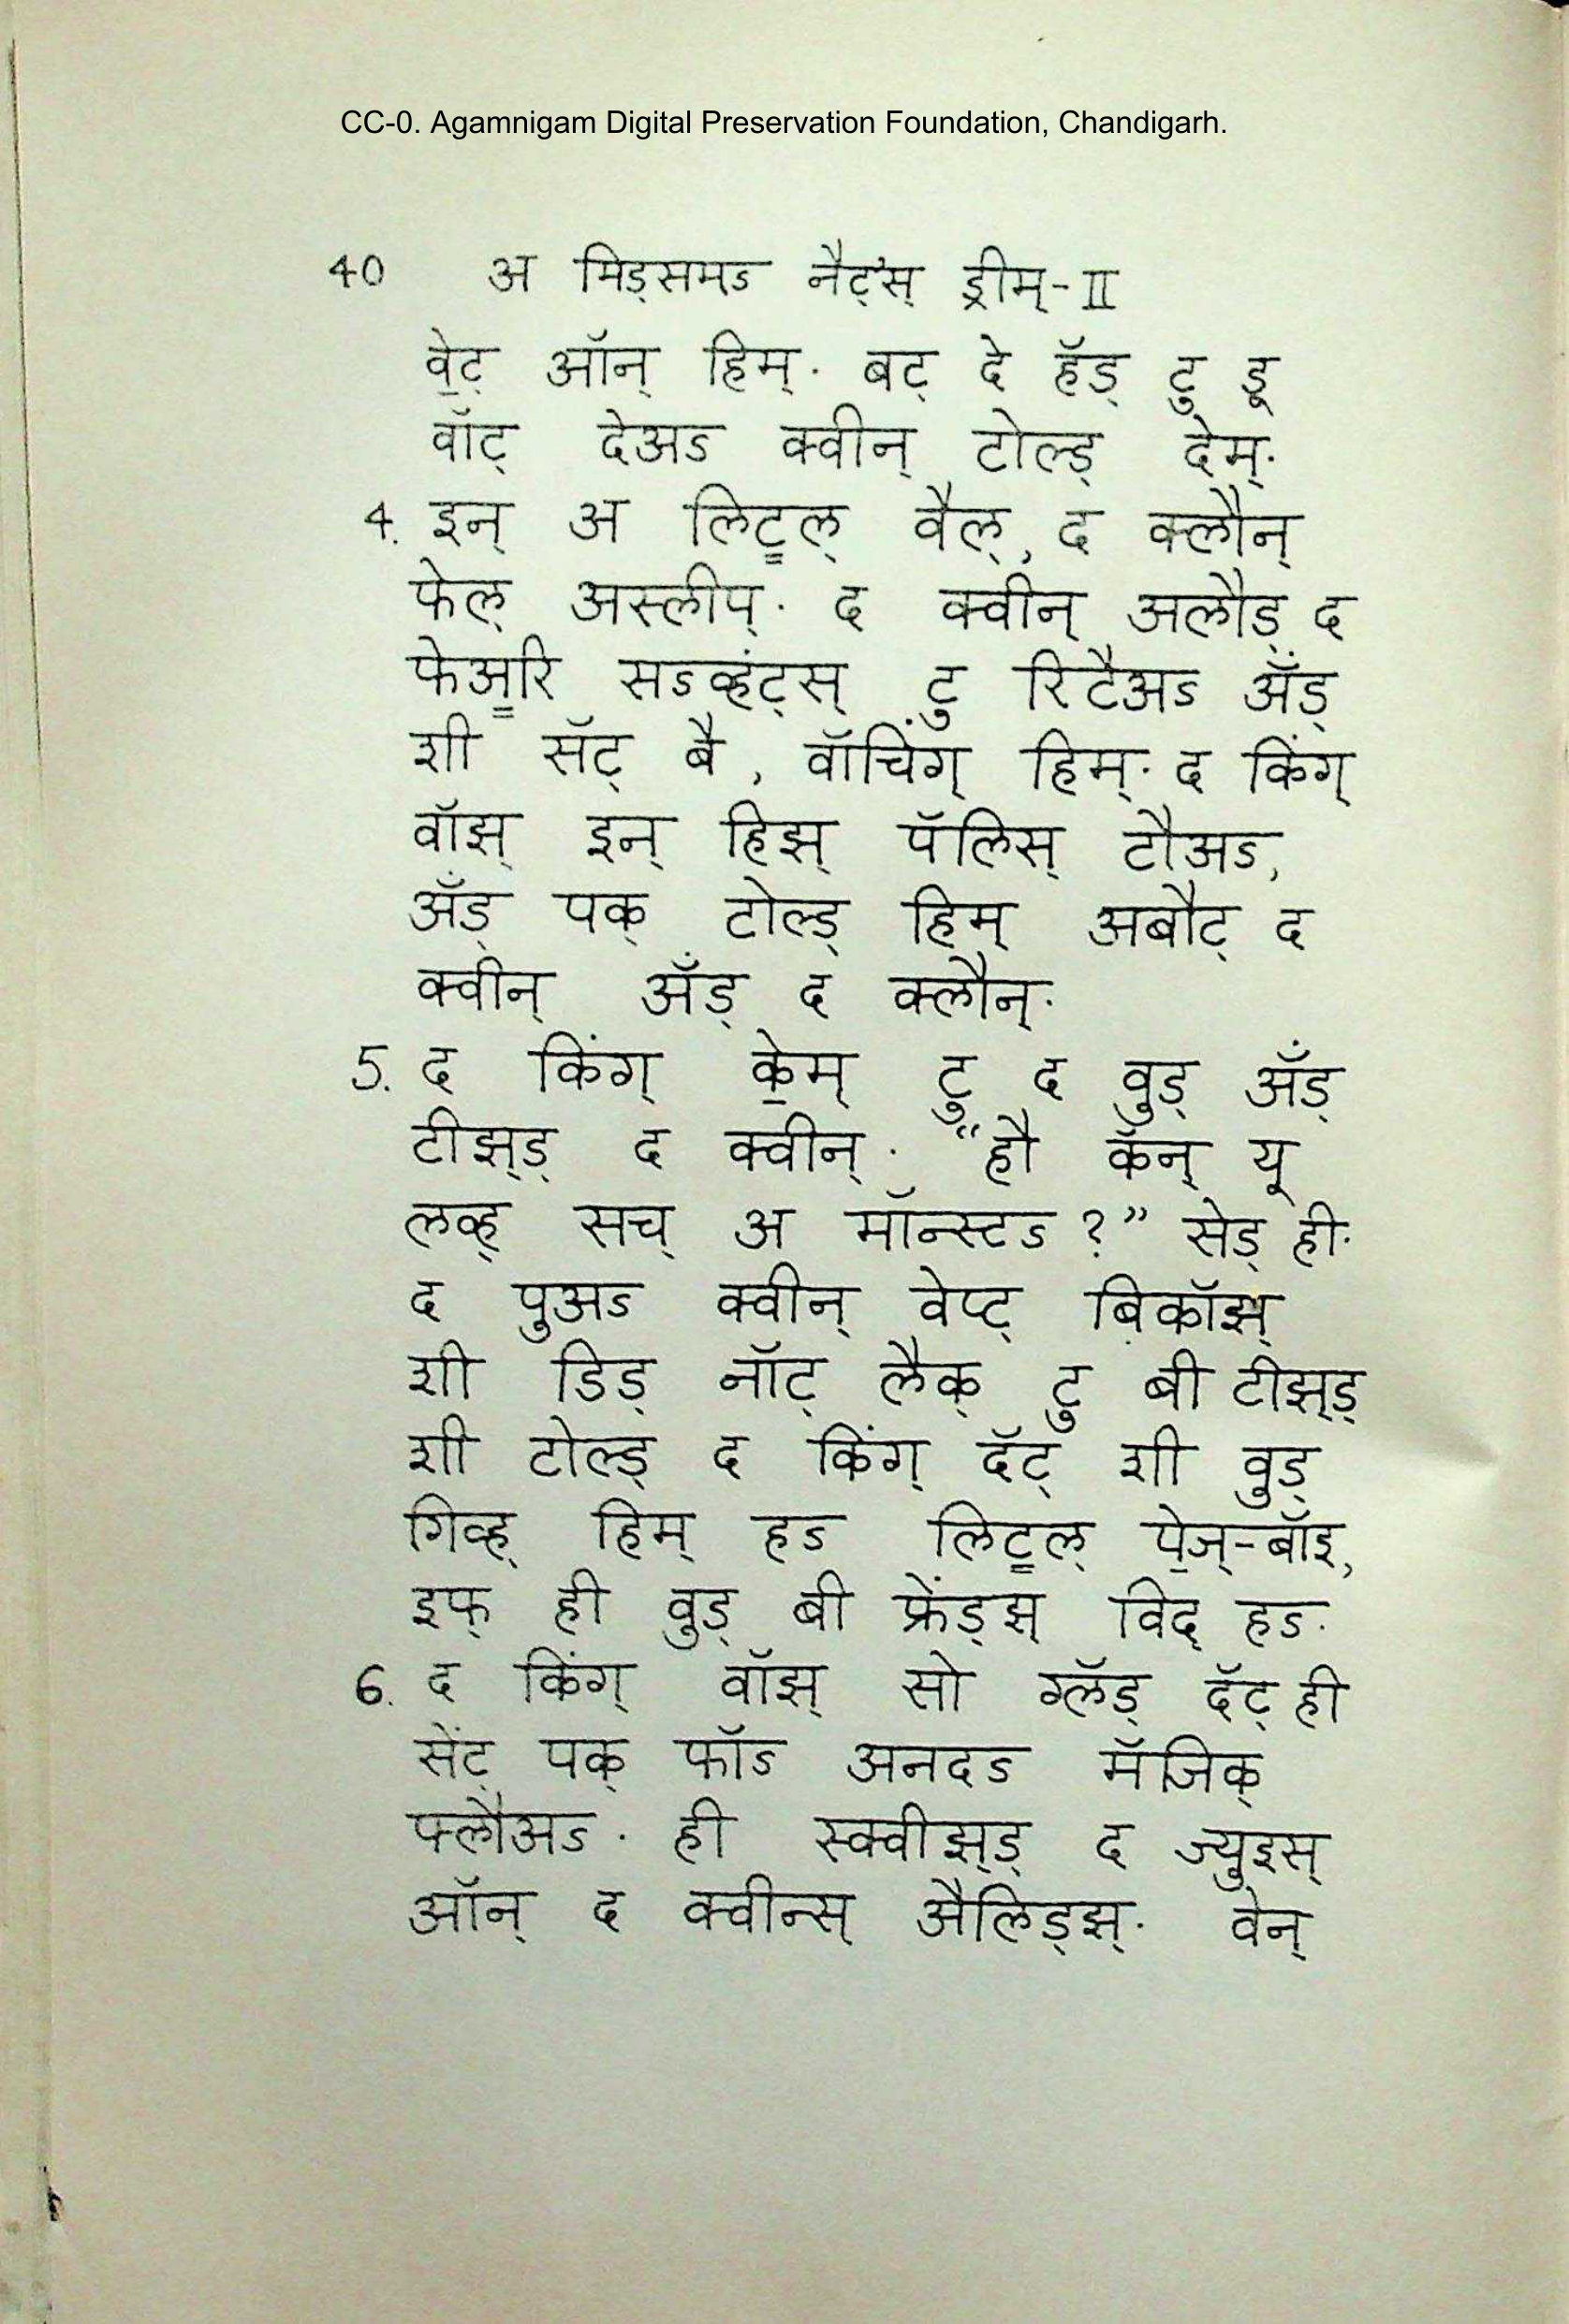 CC-0. Agamnigam Digital Preservation Foundation, Chandigarh.
40 अ मिड्समऽ नैट्'स् ड्रीम्-II
वे॒ट् ऑन् हिम्. बट् दे हॅड् टु डू
वॉट् देअऽ क्वीन् टोल्ड् देम्.
4. इन् अ लिट्॒ल् वैल्, द क्लौन्
फेल् अस्लीप्. द क्वीन् अलौड् द
फेअ॒रि सऽव्हंट्स् टु रिटैअऽ ॲंड्
शी सॅट् बै, वॉचिंग् हिम्. द किंग्
वॉझ् इन् हिझ् पॅलिस् टौअऽ,
ॲंड् पक् टोल्ड् हिम् अबौट् द
क्वीन् ॲंड् द क्लौन्.
5. द किंग् के॒म् टु द वुड् ॲंड्
टीझ्ड् द क्वीन्. “हौ कॅन् यू
लव्ह् सच् अ मॉन्स्टऽ?” सेड् ही.
द पुअऽ क्वीन् वेप्ट् बिकॉझ्
शी डिड् नॉट् लैक् टु बी टीझ्ड्
शी टोल्ड् द किंग् दॅट् शी वुड्
गिव्ह् हिम् हऽ लिट्॒ल् पे॒ज्-बॉइ,
इफ् ही वुड् बी फ्रेंड्झ् विद् हऽ.
6. द किंग् वॉझ् सो ग्लॅड् दॅट् ही
सेंट् पक् फॉऽ अनदऽ मॅजिक्
फ्लौअऽ. ही स्क्वीझ्ड् द ज्युइस्
ऑन् द क्वीन्स् ऐलिड्झ्. वेन्